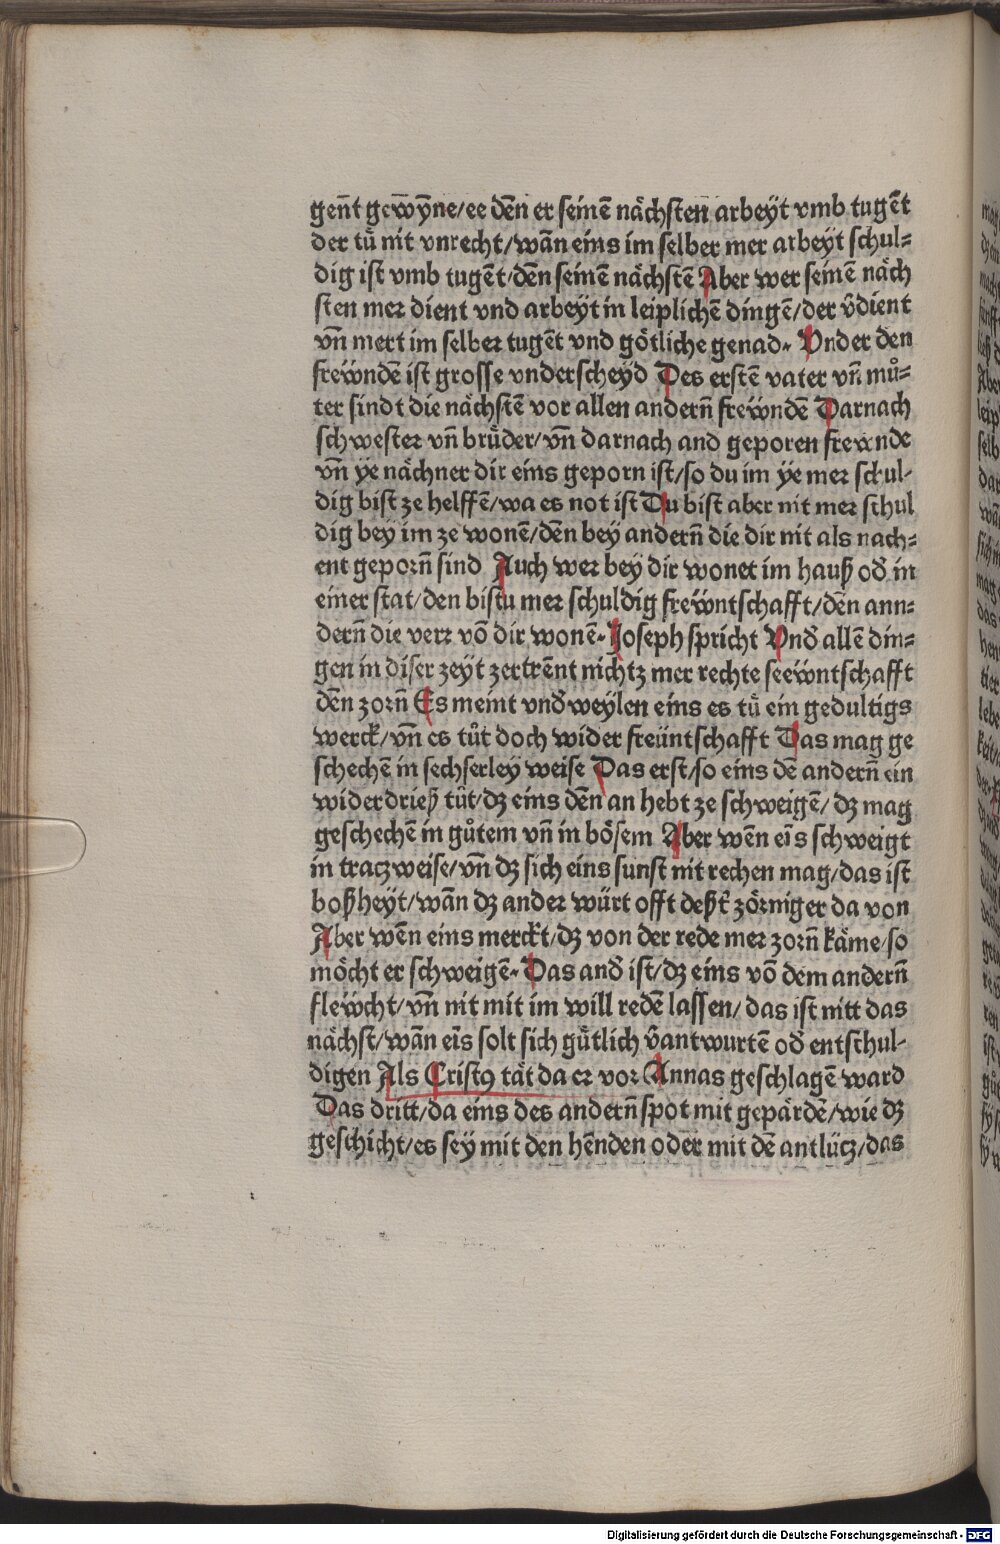 gen̄t gew̄ÿne/ee dēn er seinē nächsten arbeÿt vmb tugēt
der tů nit vnrecht/wān eins im selber mer arbeÿt schul⸗
dig ist vmb tugēt/dēn seinē nächstē Aber wer seinē näch
sten mer dient vnd arbeÿt in leiplichē dingē/der v̄dient
vn̄ mert im selber tugēt vnd götliche genad. Vnder den
frewndē ist grosse vnderscheyd Des erstē vater vn̄ mů⸗
ter sind t die nächstē vor allen andern̄ frewndē Darnach
schwester vn̄ brüder/vn̄ darnach and geporen frewnde
vn̄ ÿe nächner dir eins geporn ist/so du im ÿe mer schul-
dig bist ze helffē/wa es not ist Du bist aber nit mer schul
dig beÿ im ze wonē/dēn beÿ andern̄ die dir nit als nach⸗
ent geporn̄ sind Auch wer beÿ dir wonet im hauß od̄ in
einer stat/den bistu mer schuldig frewntschafft/dēn ann⸗
dern̄ die verr vō dir wonē. Joseph spricht Vnd̄ allē din⸗
gen in diser zeÿt zertrēnt nichtz mer rechte seewntschafft
dēn zorn̄ Es meint vnd̄weÿlen eins es tů ein gedultigs
werck/vn̄ es tůt doch wider freüntschafft Das mag ge
schechē in sechserleÿ weise Das erst/so eins dē andern̄ ein
widerdrieß tůt/dꝫ eins dēn an hebt ze schweigē/dꝫ mag
geschechē in gůtem vn̄ in bösem Aber wēn eīs schweigt
in traczweise/vn̄ dꝫ sich eins sunst nit rechen mag/das ist
boßheÿt/wān dꝫ ander würt offt deßt̄ zörniger da von
Aber wēn eins merckt/dꝫ von der rede mer zorn̄ käme/so
möcht er schweigē. Das and̄ ist/dꝫ eins vō dem andern̄
flewcht/vn̄ nit mit im will redē lassen/das ist nitt das
nächst/wān eīs solt sich gütlich v̄antwurtē od̄ entschul-
digen Als Cristꝰ tät da er vor Annas geschlagē ward
Das dritt/da eins des andern̄ spot mit gepärdē/wie dꝫ
geschicht/es seÿ mit den hēnden oder mit dē antlücz/das
Digitalisierung gefördert durch die Deutsche Forschungsgemeinschaft - DFG